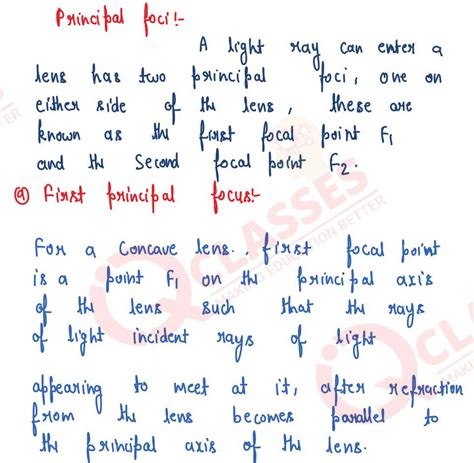 Principal foci:-
A light ray can enter a
lens has two principal foci, one on
either side of the lens, these are
known as the first focal point F1
and the Second focal point F2.
(a) First principal focus:-
For a Concave lens., first focal point
is a point F1 on the principal axis
of the lens such that the rays
of light incident rays of light
appearing to meet at it, after refraction
from the lens becomes parallel to
the principal axis of the lens.
CLASSES
MAKING EDUCATION BETTER